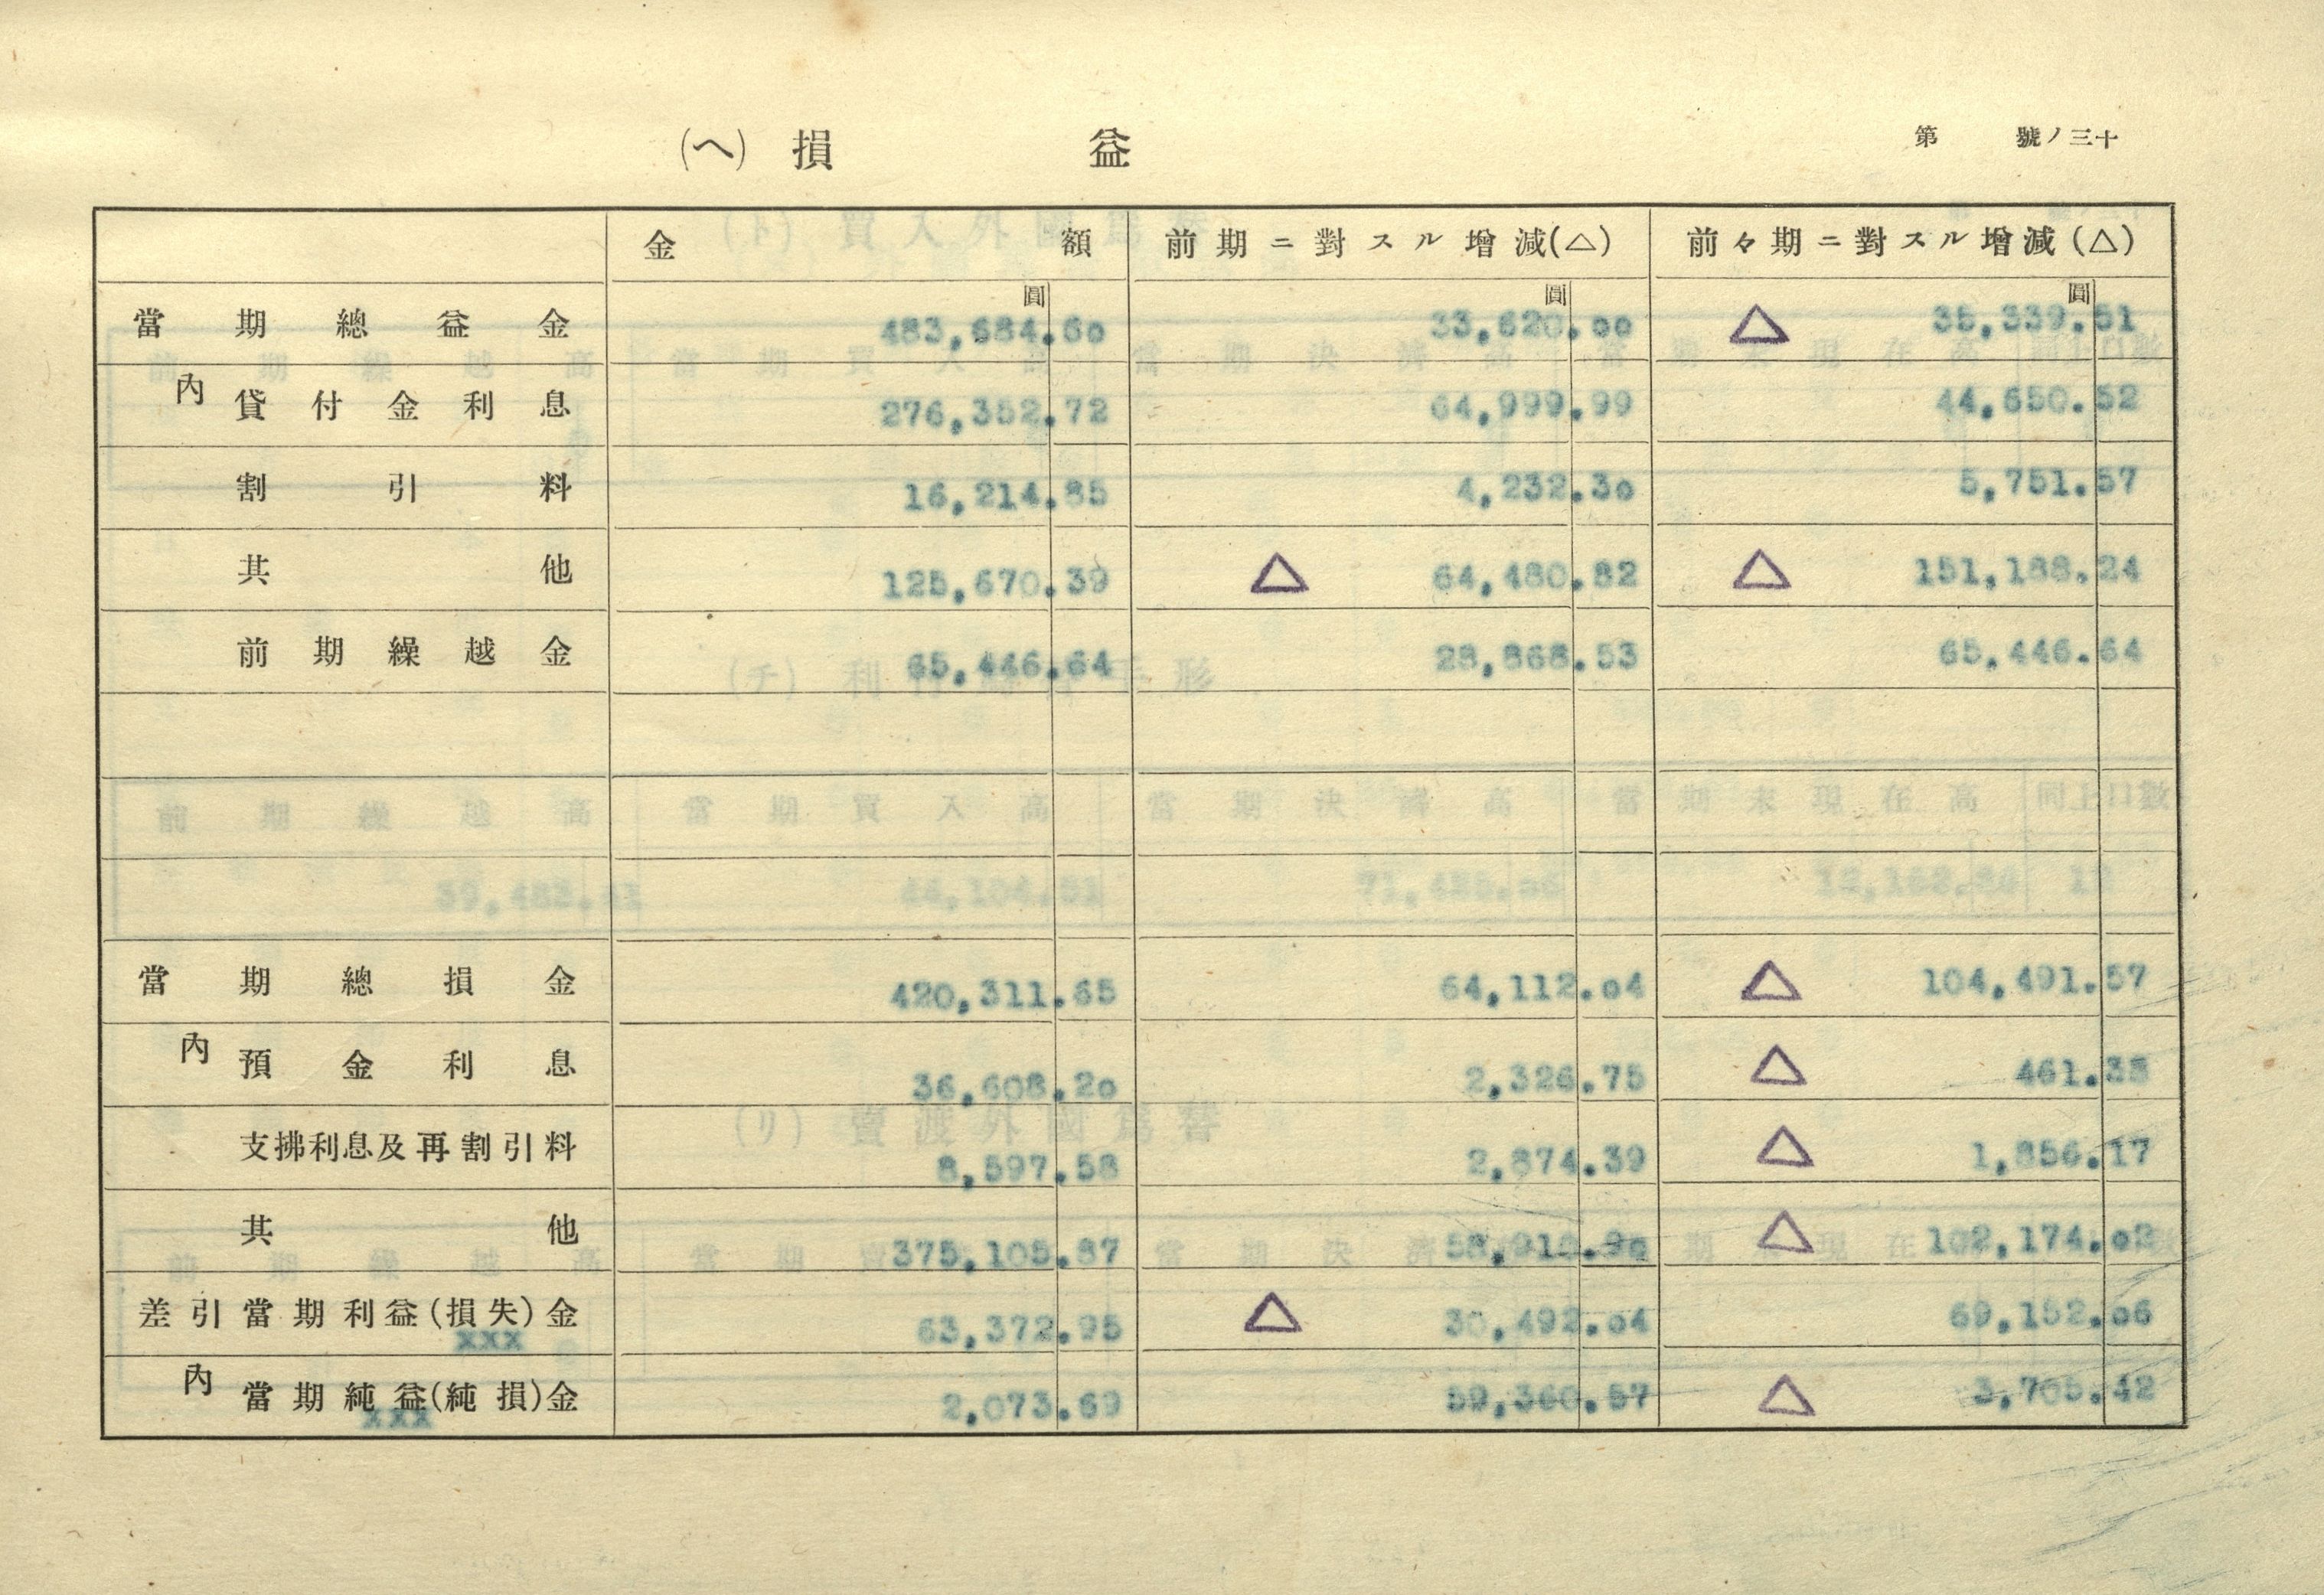 第 號ノ三十
(ヘ) 損 益
金 額 前期ニ對スル增減(△) 前々期ニ對スル增減(△)
圓 圓 圓
當期總益金 483,684.60 33,620.00 △ 35,339.51
內 貸付金利息 276,352.72 64,999.99 44,650.52
割引料 16,214.85 4,232.30 5,751.57
其他 125,670.39 △ 64,480.82 △ 151,188.24
前期繰越金 65,446.64 28,868.53 65,446.64
當期總損金 420,311.65 64,112.04 △ 104,491.57
內 預金利息 36,608.20 2,326.75 △ 461.38
支拂利息及再割引料 8,597.58 2,874.39 △ 1,856.17
其他 375,105.87 58,910.90 △ 102,174.02
差引當期利益(損失)金 63,372.95 △ 30,492.04 69,152.06
xxx
內 當期純益(純損)金 2,073.69 59,360.57 △ 3,705.42
xxx